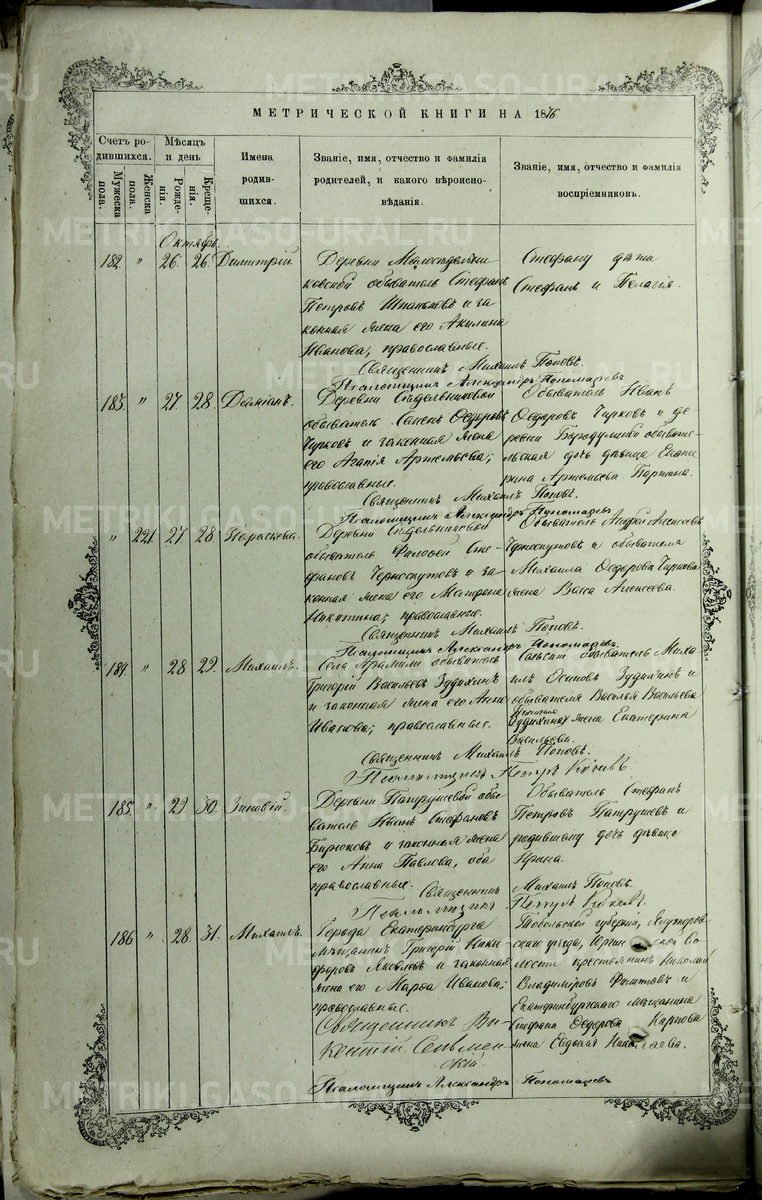 МЕТРИЧЕСКОЙ КНИГИ НА 1876
Счетъ родившихся.
Мужеска пола.
Женска пола.
Мѣсяцъ и день
Рожденія.
Крещенія.
Имена родившихся.
Званіе, имя, отчество и фамилія родителей, и какого вѣроисповѣданія.
Званіе, имя, отчество и фамилія воспріемниковъ.
Октябрь
182. " 26. 26. Димитрій.
Деревни
обыватель Стефанъ
Петровъ и за
конная жена его Акилина
Иванова, православные.
Стефану дѣти
Стефанъ и Пелагія.
Священникъ Михаилъ Поповъ.
Псаломщикъ Александръ Пономаревъ
183. " 27. 28. Даміанъ.
Деревни Сѣдельниковой
обыватель Ѳедоровъ
Чирковъ и законная жена
его Агапія Артемьева;
православные.
Обыватель Иванъ
Ѳедоровъ Чирковъ и де
ревни Бородулиной обывате-
льская дочь дѣвица Екате
рина Артемьева
Священникъ Михаилъ Поповъ.
Псаломщикъ Александръ Пономаревъ
" 221 27 28 Параскева.
Деревни Сѣдельниковой
обыватель Филоѳей Сте
фановъ Черноскутовъ и за
конная жена его Матрона
Никитина; православные.
Обыватель Андрей Алексѣевъ
Черноскутовъ и обывателя
Михаила Ѳедорова Чиркова
жена Васса Алексѣева.
Священникъ Михаилъ Поповъ.
Псаломщикъ Александръ Пономаревъ
184. " 28 29. Михаилъ.
Села Арамили обыватель
Григорій Васильевъ Зудихинъ
и законная жена его Анна
Иванова; православные.
обыватель Миха
илъ Осиповъ Зудихинъ и
обывателя Василья Васильева
жена Екатерина
Васильева.
Священникъ Михаилъ Поповъ.
Псаломщикъ Петръ
185. " 29 30. Зиновій.
Деревни Патрушевой обы
ватель Стефановъ
Бирюковъ и законная жена
его Анна Павлова, оба
православные.
Обыватель Стефанъ
Петровъ Патрушевъ и
родившему дочь дѣвица
Ирина.
Священникъ Михаилъ Поповъ.
Псаломщикъ Петръ
186 " 28. 31. Михаилъ.
Города Екатеринбурга
мѣщанинъ Григорій Ники
форовъ Яковлевъ и законная
жена его Марѳа Иванова;
православные.
Тобольской губерніи, Ялуторов
скаго уѣзда, во
лости крестьянинъ Николай
Владиміровъ Филиповъ и
Екатеринбургскаго мѣщанина
Стефана Ѳедорова Карпова
жена Евдокія
Священникъ Ви-
кентій
Псаломщикъ Александръ Пономаревъ
METRIKI.GASO-URAL.RU